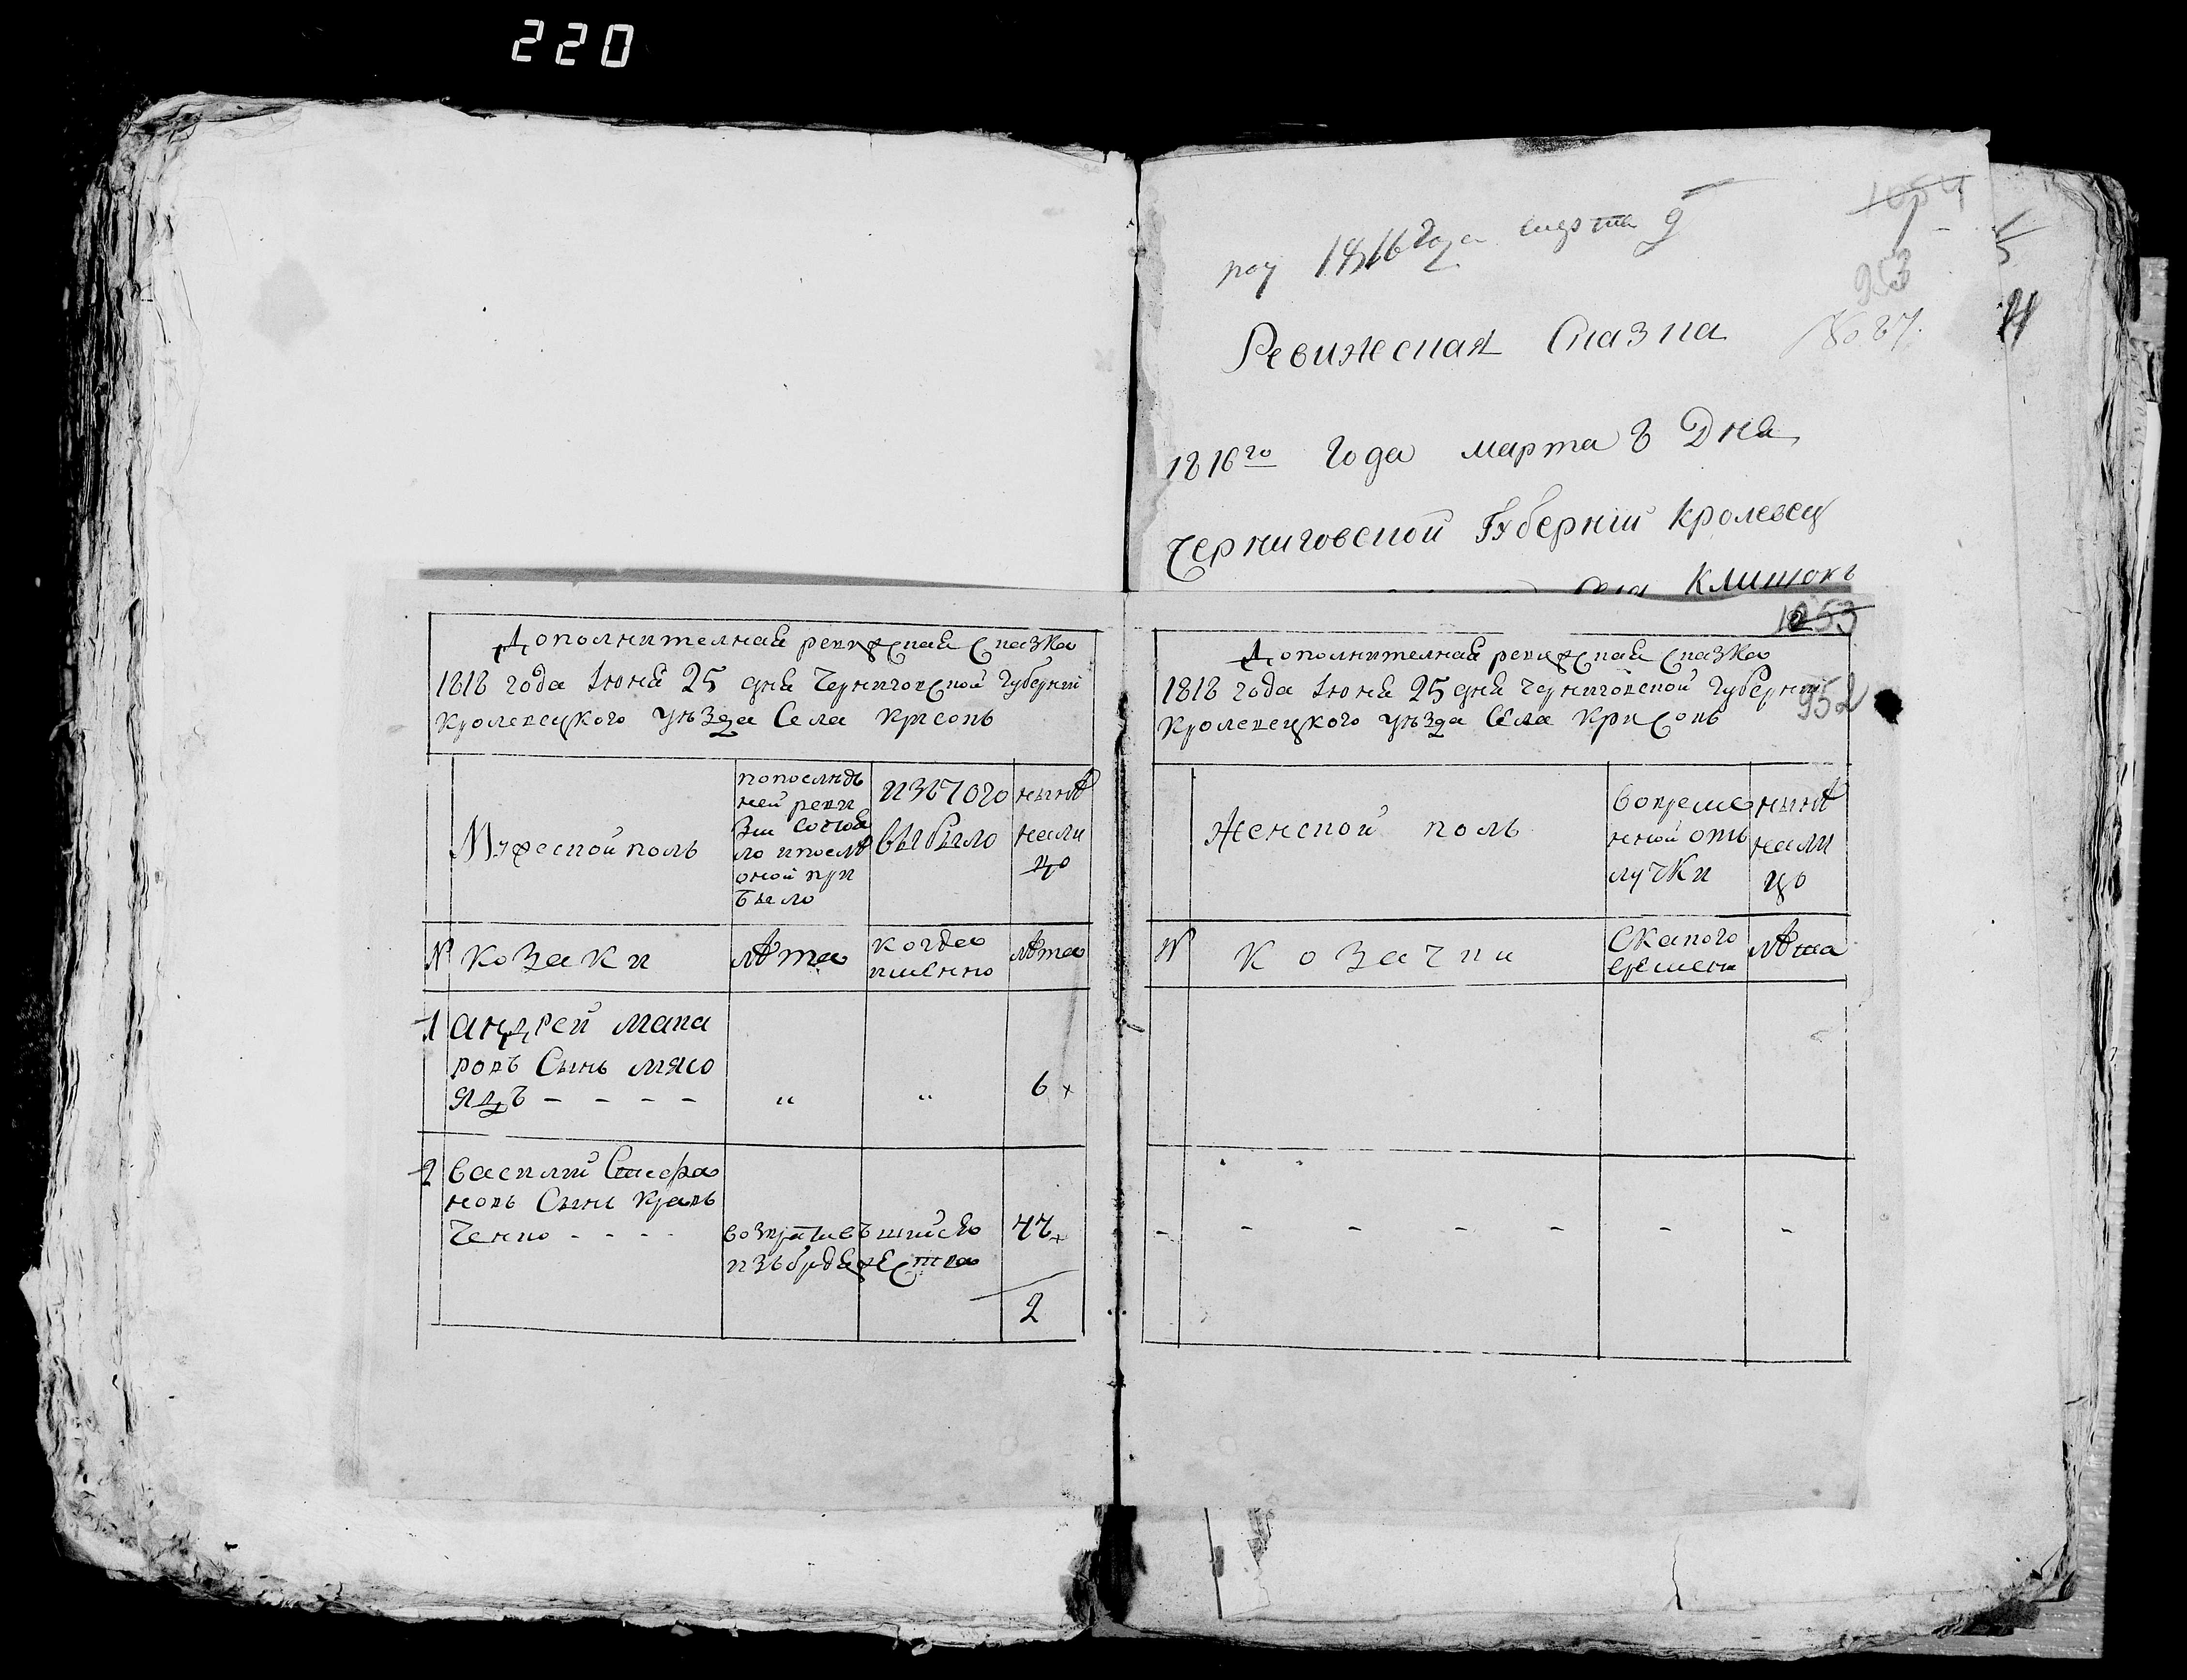 220
1816 года марта 9
1054
953
№ 87.
Ревижская Сказка
1816го Года марта 8 Дня
Черниговской Губерніи Кролевец
села Клишокъ
1053
952
Дополнителная ревижская Сказка
1818 года Июня 25 дня Черниговской Губерніи
Кролевецкого уѣзда Села Крисокъ
Мужеской полъ
по послѣд
ней реви
зіи состоя
ло и послѣ
оной при
было
изътого
выбыло
нынѣ
нали
цо
№ козаки
лѣта
когда
имянно
лѣта
1 Андрей Мака
ровъ Сынъ Мясо
ядъ - - - -
"
"
6 х
2 Василій Стефа
новъ Сынъ Крав
ченко - - - -
возвративъшийсо
изъбродяжества
44 х
2
Дополнителная ревижская Сказка
1818 года Июня 25 дня Черниговской Губерніи
Кролевецкого уѣзда Села Крисокъ
Женской полъ
вовреме
нной отъ
лучки
нынѣ
нали
цо
№ козачки
Скакого
времени
лѣта
- - - - - - -